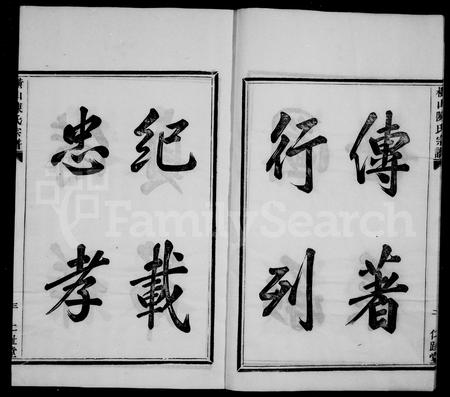 傳著
行列
紀載
忠孝
陳氏宗譜
FamilySearch